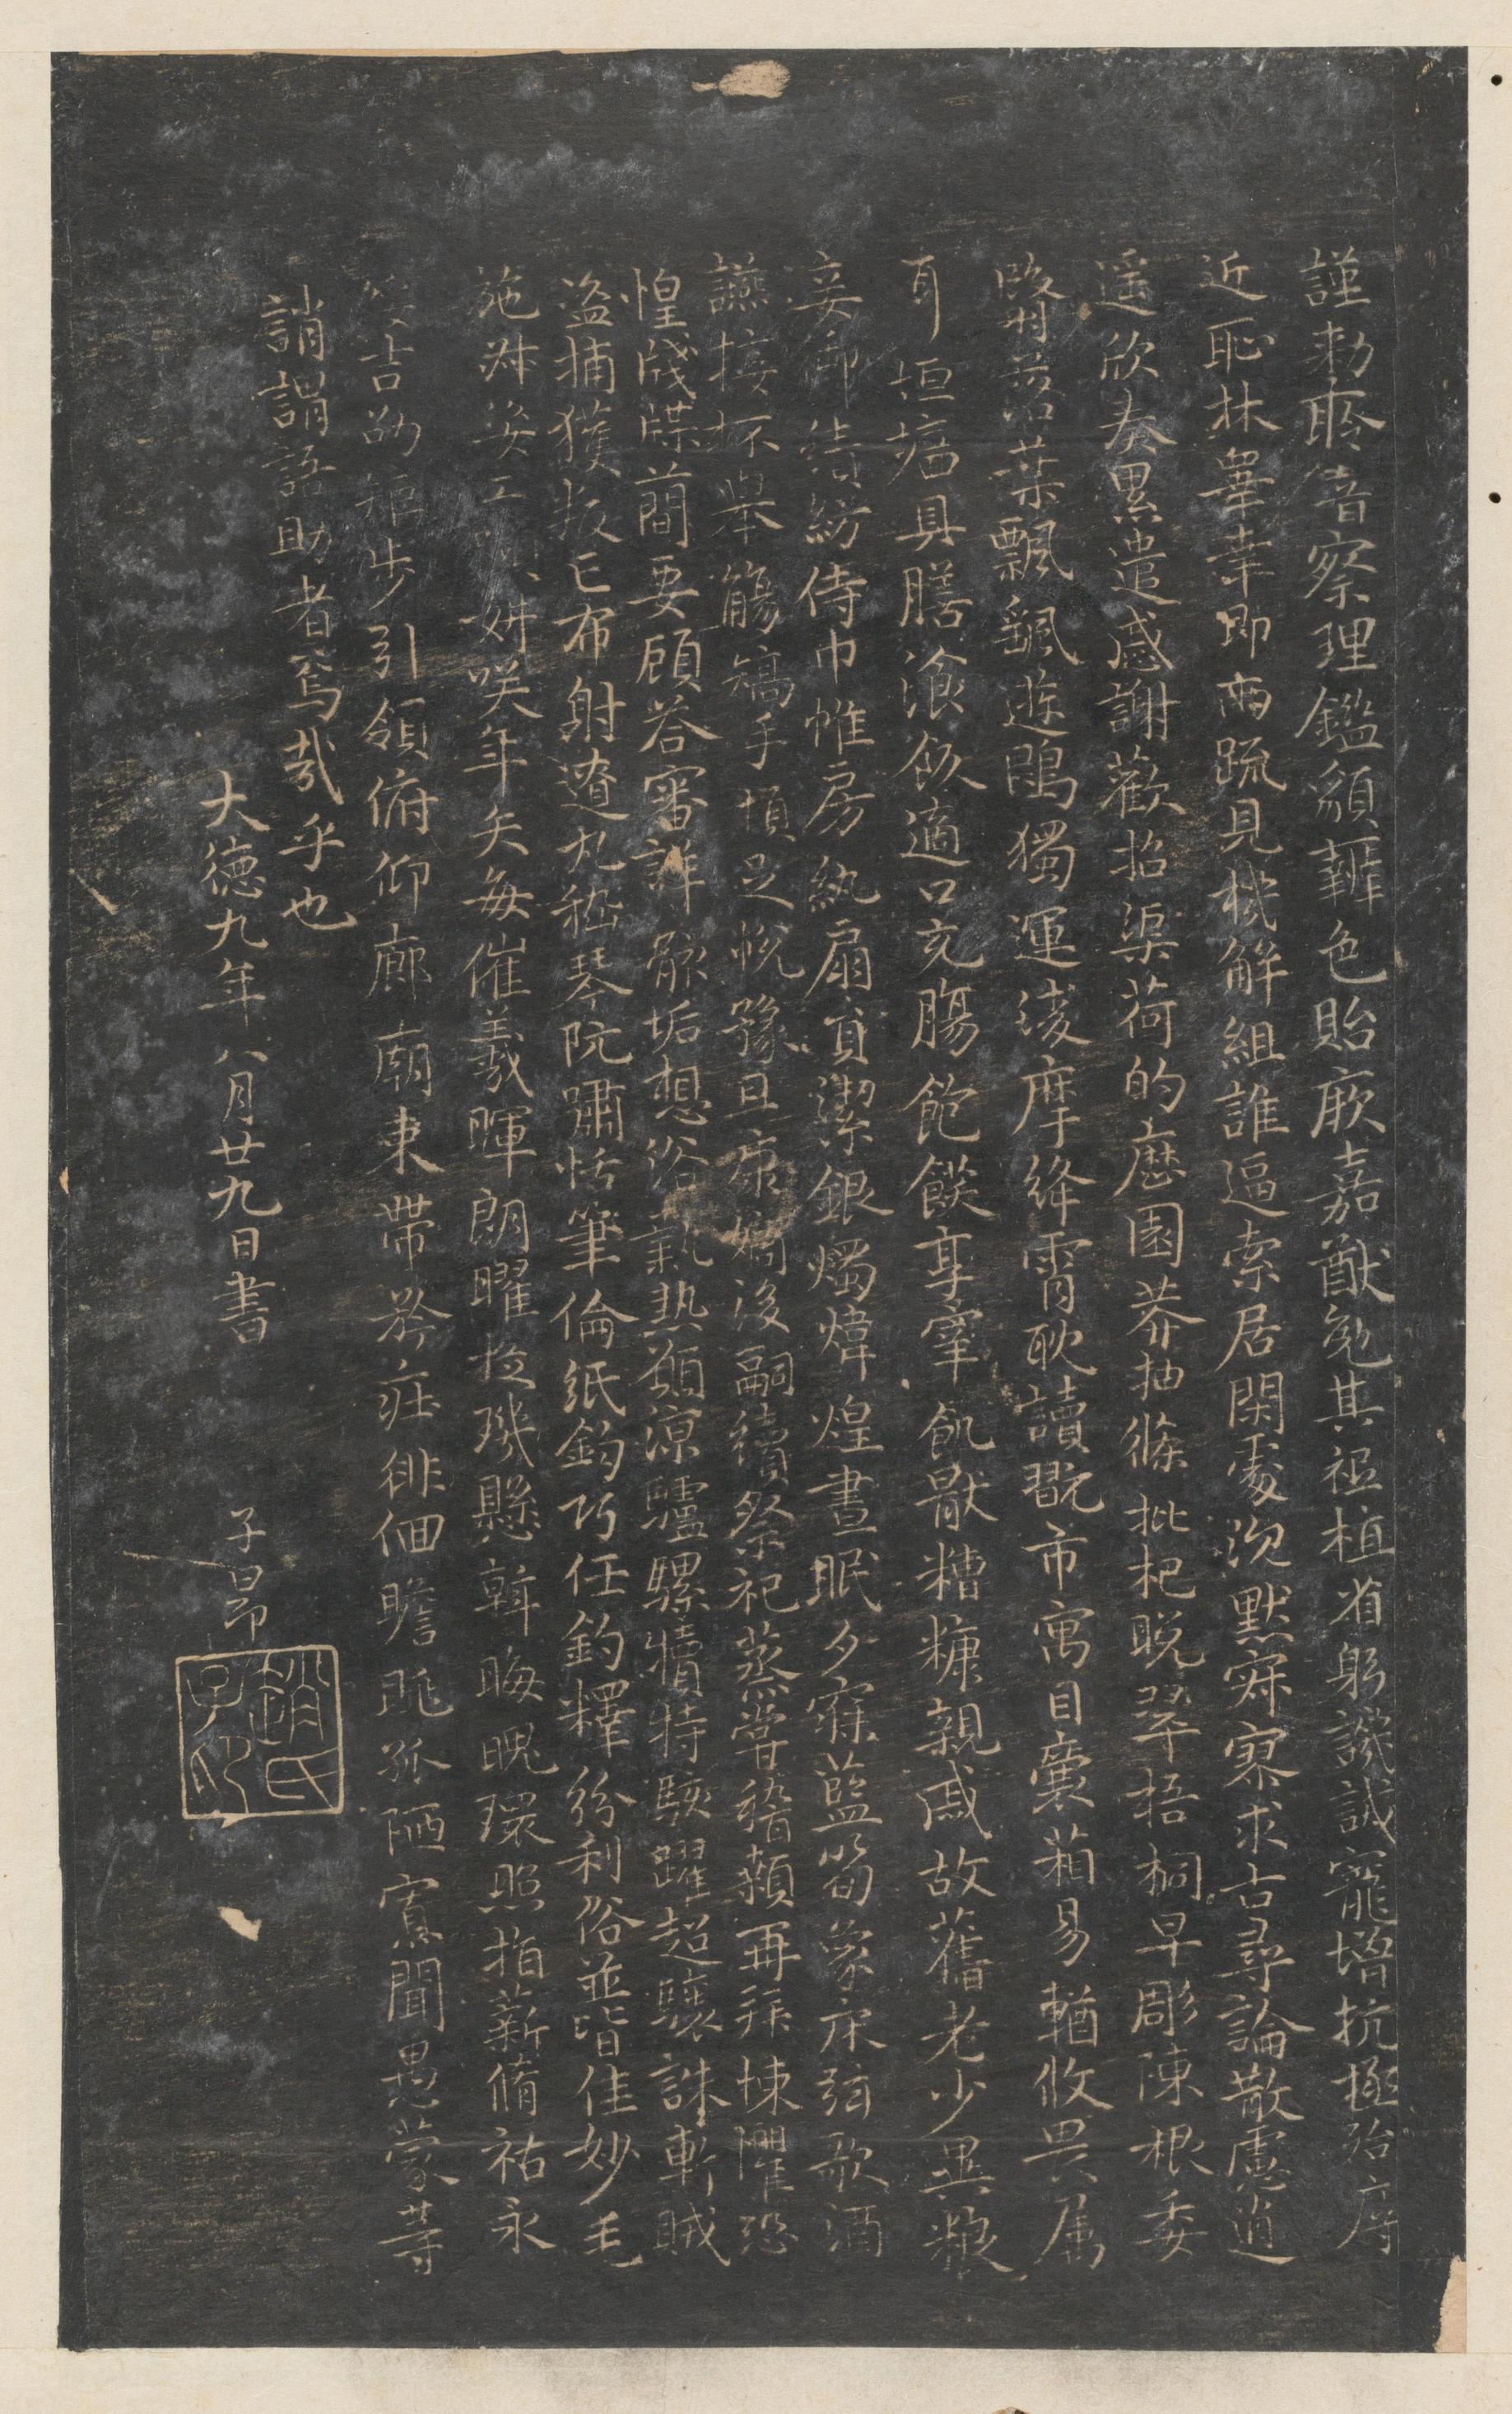 謹勅聆音察理鑑貌辯色貽厥嘉猷勉其祗植省躬譏誡寵增抗極殆辱
近恥林睾幸即兩疏見機解組誰逼索居閑處沉默寂寥求古尋論散慮逍
遥欣奏累遣慼謝歡招渠荷的歷園莽抽條枇杷晚翠梧桐早彫陳根委
翳落葉飄颻遊鵾獨運凌摩絳霄耽讀翫市寓目囊箱易輶攸畏属
耳垣墻具膳湌飯適口充腸飽飫享宰飢猒糟糠親戚故舊老少異粮
妾御績紡侍巾帷房紈扇員潔銀燭煒煌晝眠夕寐藍笋象床弦歌酒
讌接杯舉觴矯手頓足悦豫且康嫡後嗣續祭祀蒸嘗稽顙再拜悚懼恐
惶牋牒簡要顧荅審詳骸垢想浴執熱願涼驢騾犢特駭躍超驤誅斬賊
盜捕獲叛亡布射遼丸嵇琴阮嘯恬筆倫紙鈞巧任釣釋紛利俗並皆佳妙毛
施淑姿工妍咲年矢每催羲暉朗曜琁璣懸斡晦魄環照指薪脩祜永
吉劭矩步引領俯仰廊廟束帶矜莊徘徊瞻眺孤陋寡聞愚蒙等
誚謂語助者焉哉乎也
大德九年八月廿九日書 子昂
趙氏子昂